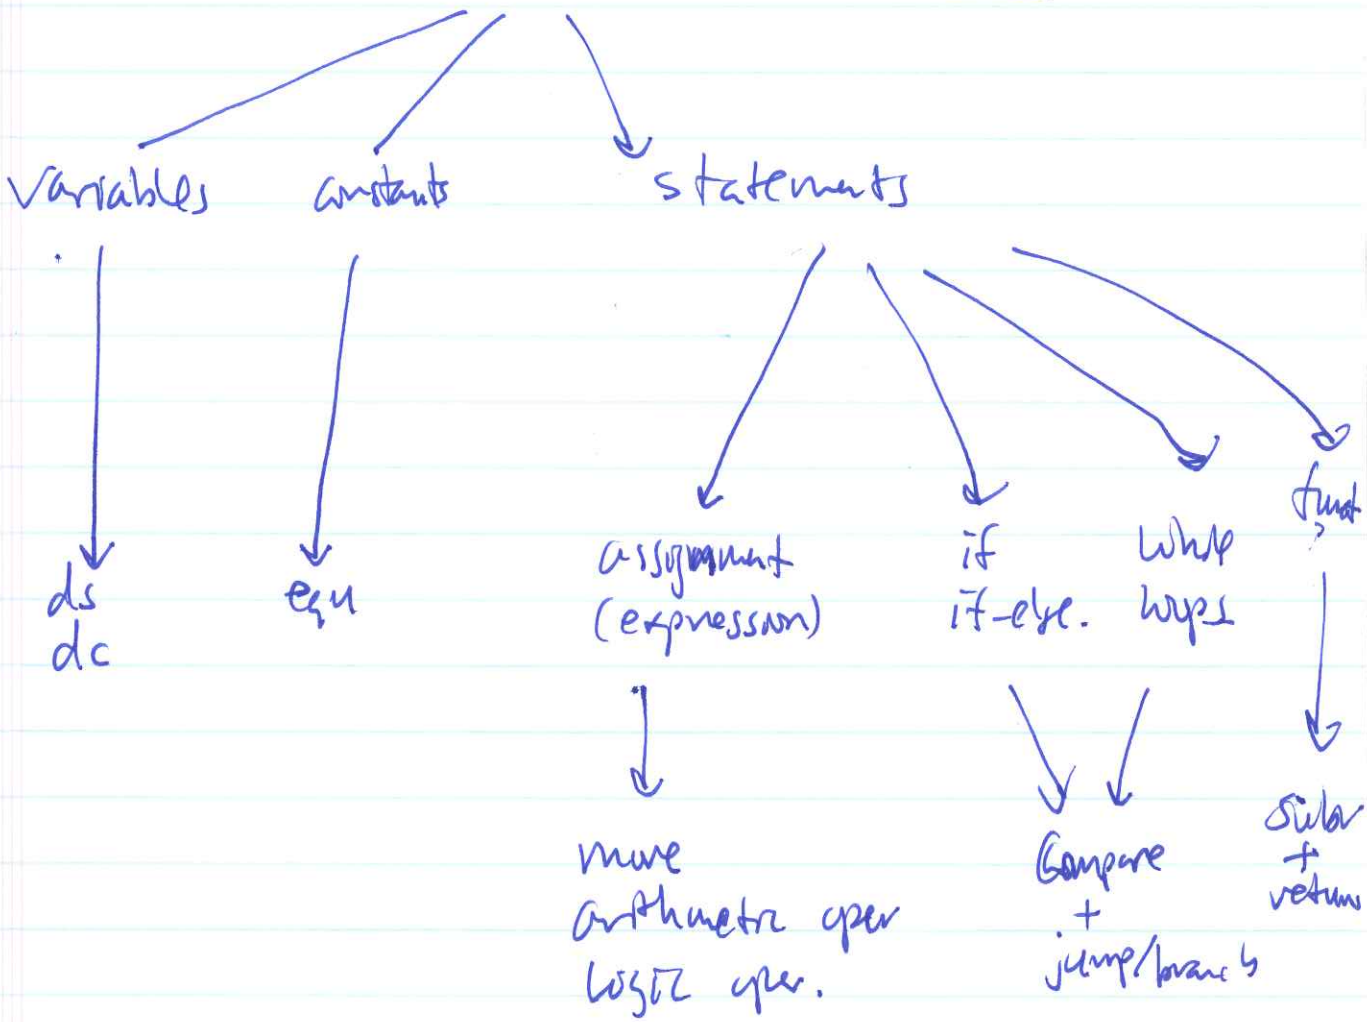 Variables constants statements
ds
dc
equ
assignment
(expression)
if
if-else.
while
loops
funct
?
move
arithmetic oper
logic oper.
Compare
+
jump/branch
Subr
+
return